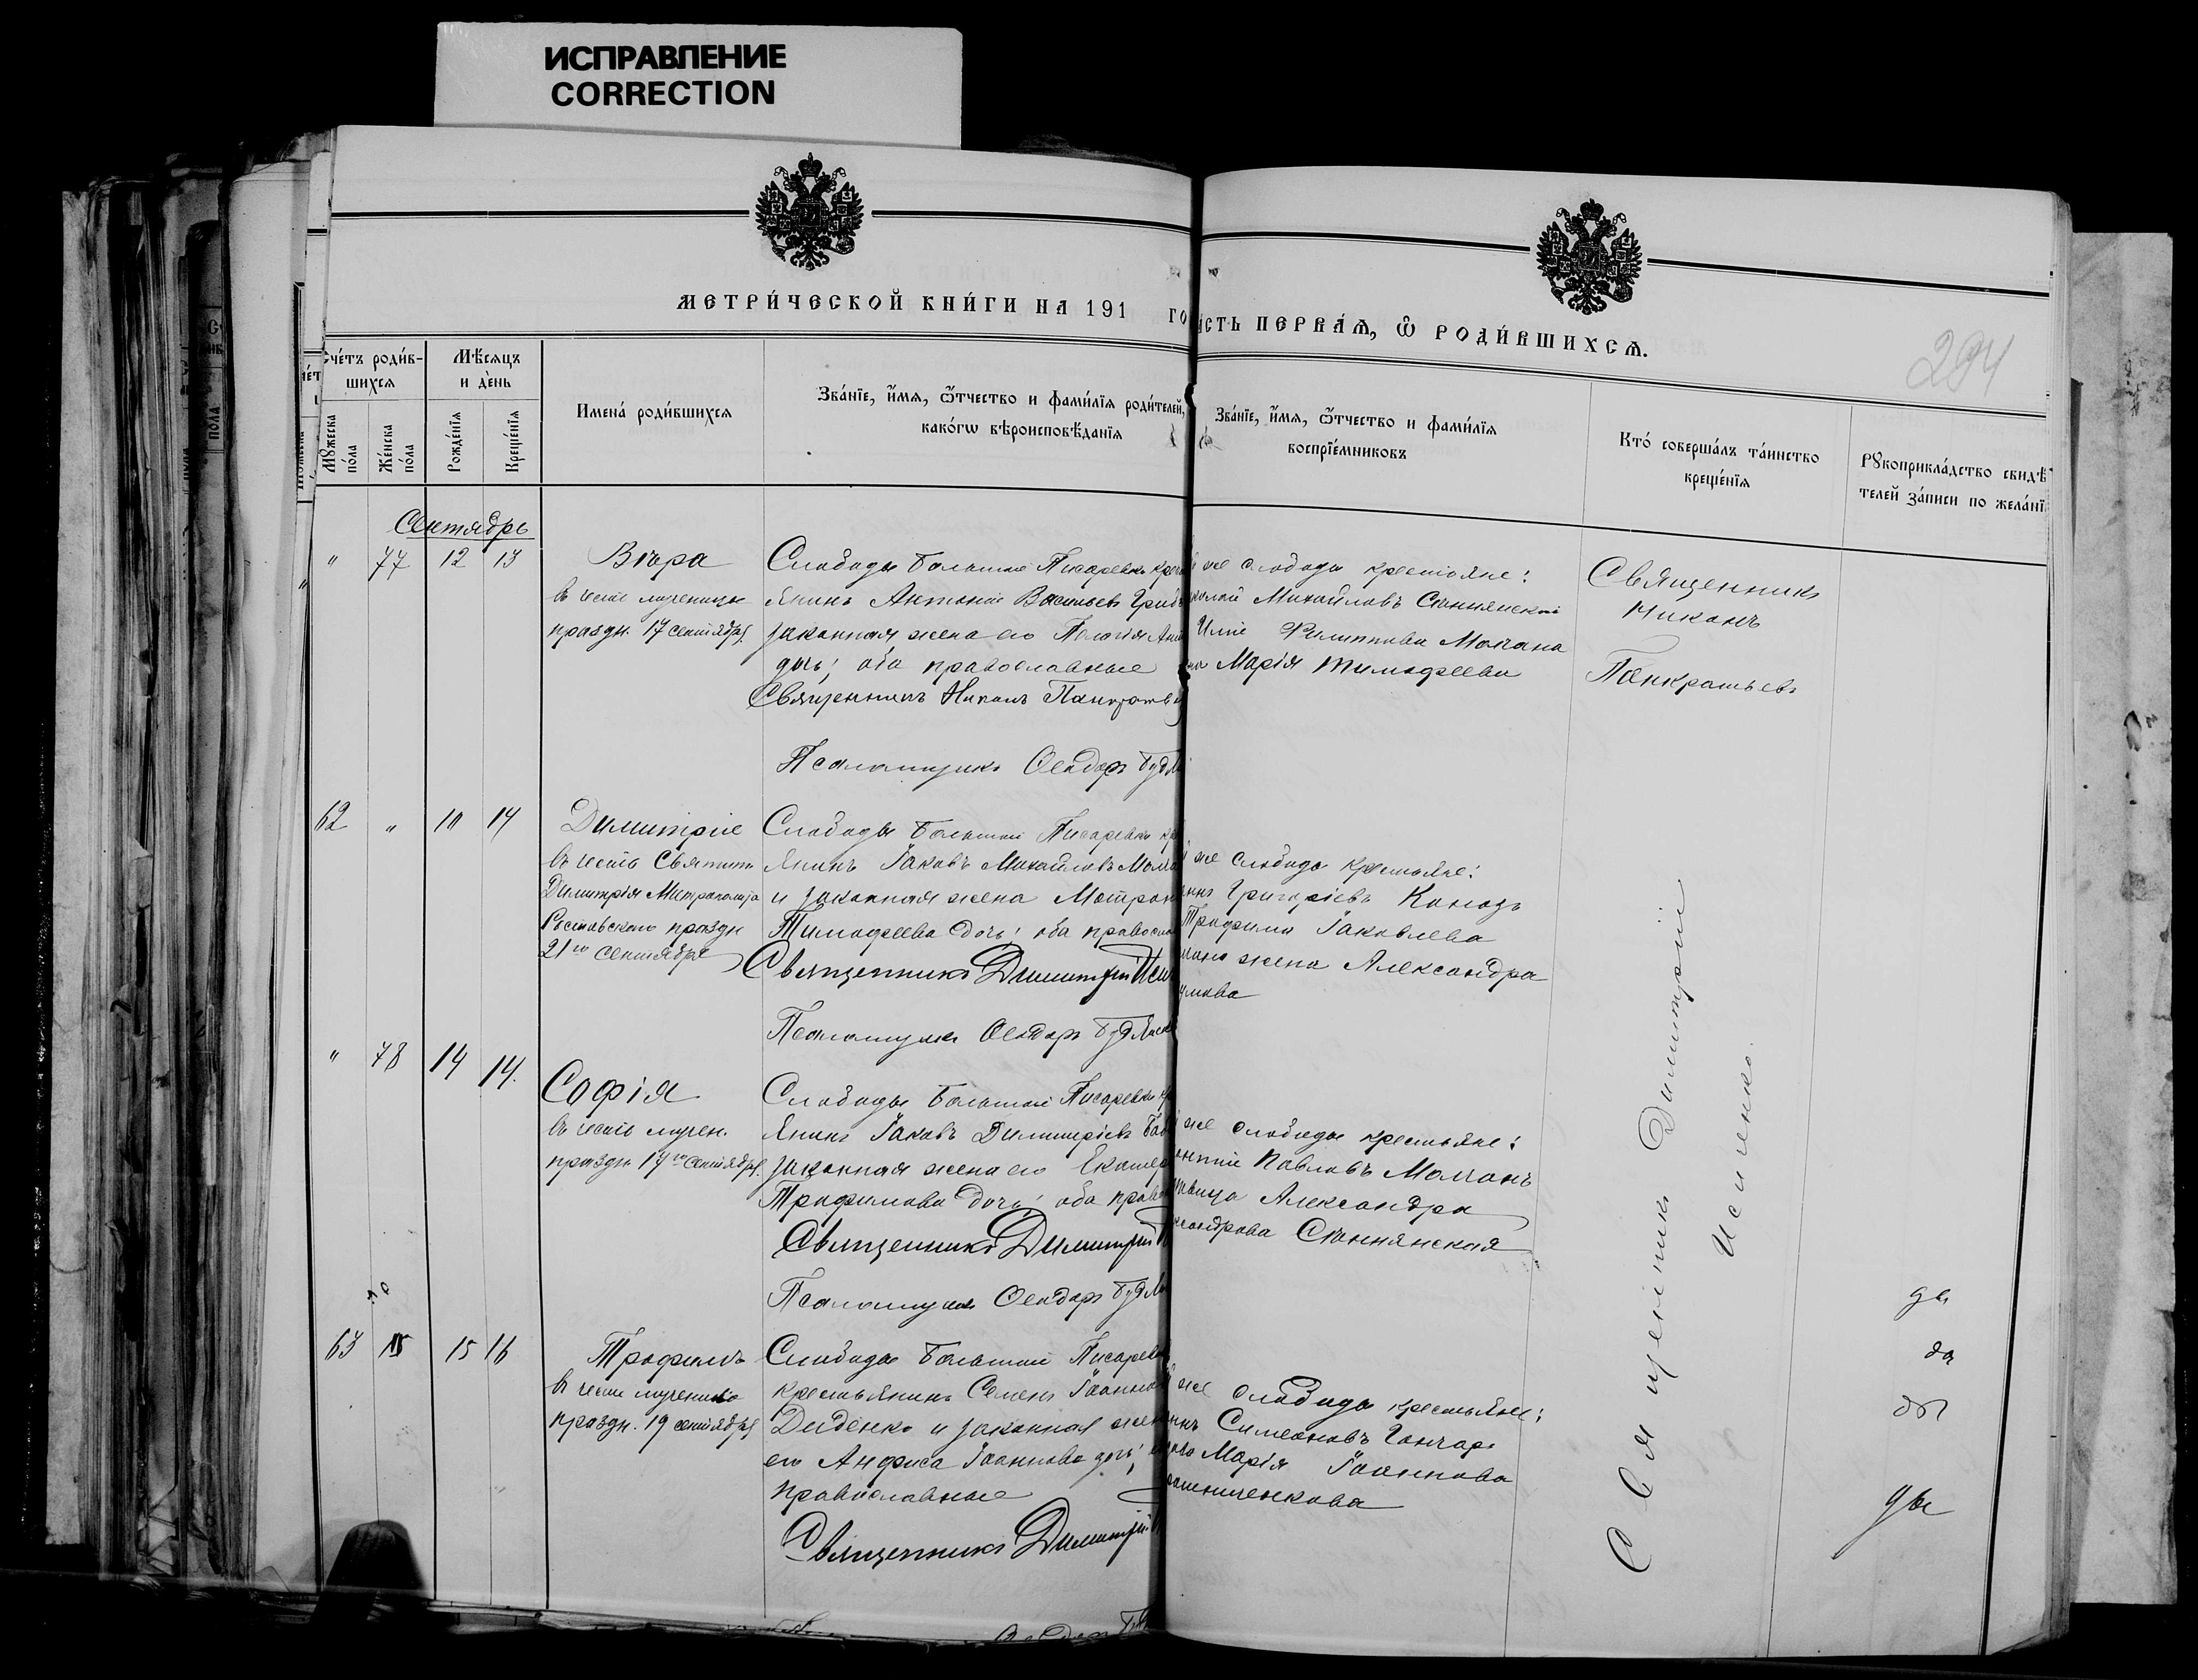 ИСПРАВЛЕНИЕ
CORRECTION
МЕТРИ́ЧЕСКОЙ КНИ́ГИ НА 191 ГО
ѦСТЬ ПЕРВА́Ѧ, Ѽ РОДИ́ВШИХСѦ.
294
Счéтъ роди́в-
шихсѧ
Мѣ́сѧцъ
и де́нь
Мꙋ́жеска
по́ла
Же́нска
по́ла
Рожде́нїѧ
Креще́нїѧ
Имена́ роди́вшихсѧ
Зва́нїе, и҆́мѧ, ѻ҆́тчество и фами́лїѧ роди́телей,
како́гѡ вѣроисповѣ́данїѧ
Зва́нїе, и҆́мѧ, ѻ҆́тчество и фами́лїѧ
воспрїе́мниковъ
Кто́ соверша́лъ та́инство
креще́нїѧ
Рꙋкоприкла́дство свидѣ́
телей за́писи по жела́нї
Сентябрь
" 77 12 13
Вѣра
въ честь мученицы
праздн. 17 сентября
Слободы Большой Писаревки крест
янинъ Антоній Васильевъ Гриб
законная жена его Пелагія Ан
дочь; оба православные
Священникъ Никонъ Панкратьев
Псаломщикъ Ѳеодоръ Будян
же слободы крестьяне:
колай Михайловъ Станянскій
Иліи Филиппова Молчана
на Марія Тимофеева
Священникъ
Никонъ
Панкратьевъ
62 " 10 14
Димитрій
въ честь Святит
Димитрія Митрополита
Ростовскаго праздн
21го сентября
Слободы Большой Писаревки кр
янинъ Іаковъ Михайловъ Молча
и законная жена Матрон
Тимофеева дочь; оба правосла
Священникъ Димитрій Иси
Псаломщикъ Ѳеодоръ Будянск
же слободы крестьяне:
Григоріевъ
Трофима Іаковлева
жена Александра
умова
" 78 14 14.
Софія
въ честь мучен.
праздн 17го сентября
Слободы Большой Писаревки кр
янинъ Іаковъ Димитріевъ Баб
законная жена его Екатер
Трофимова дочь; оба право
Священникъ Димитрій
Псаломщикъ Ѳеодоръ Будян
же слободы крестьяне:
Павловъ Молчанъ
вица Александра
ксандрова Станянская
Священникъ Димитрій
Исиченко.
63 15 16
Трофимъ
въ честь мученика
праздн. 19 сентября
Слободы Большой Писарев
крестьянинъ Семенъ Іоаннов
Диденко и законная жен
его Анфиса Іоаннова дочь;
православные
Священникъ Димитрій
же слободы крестьяне:
Симеоновъ Гончар
Марія Іоаннова